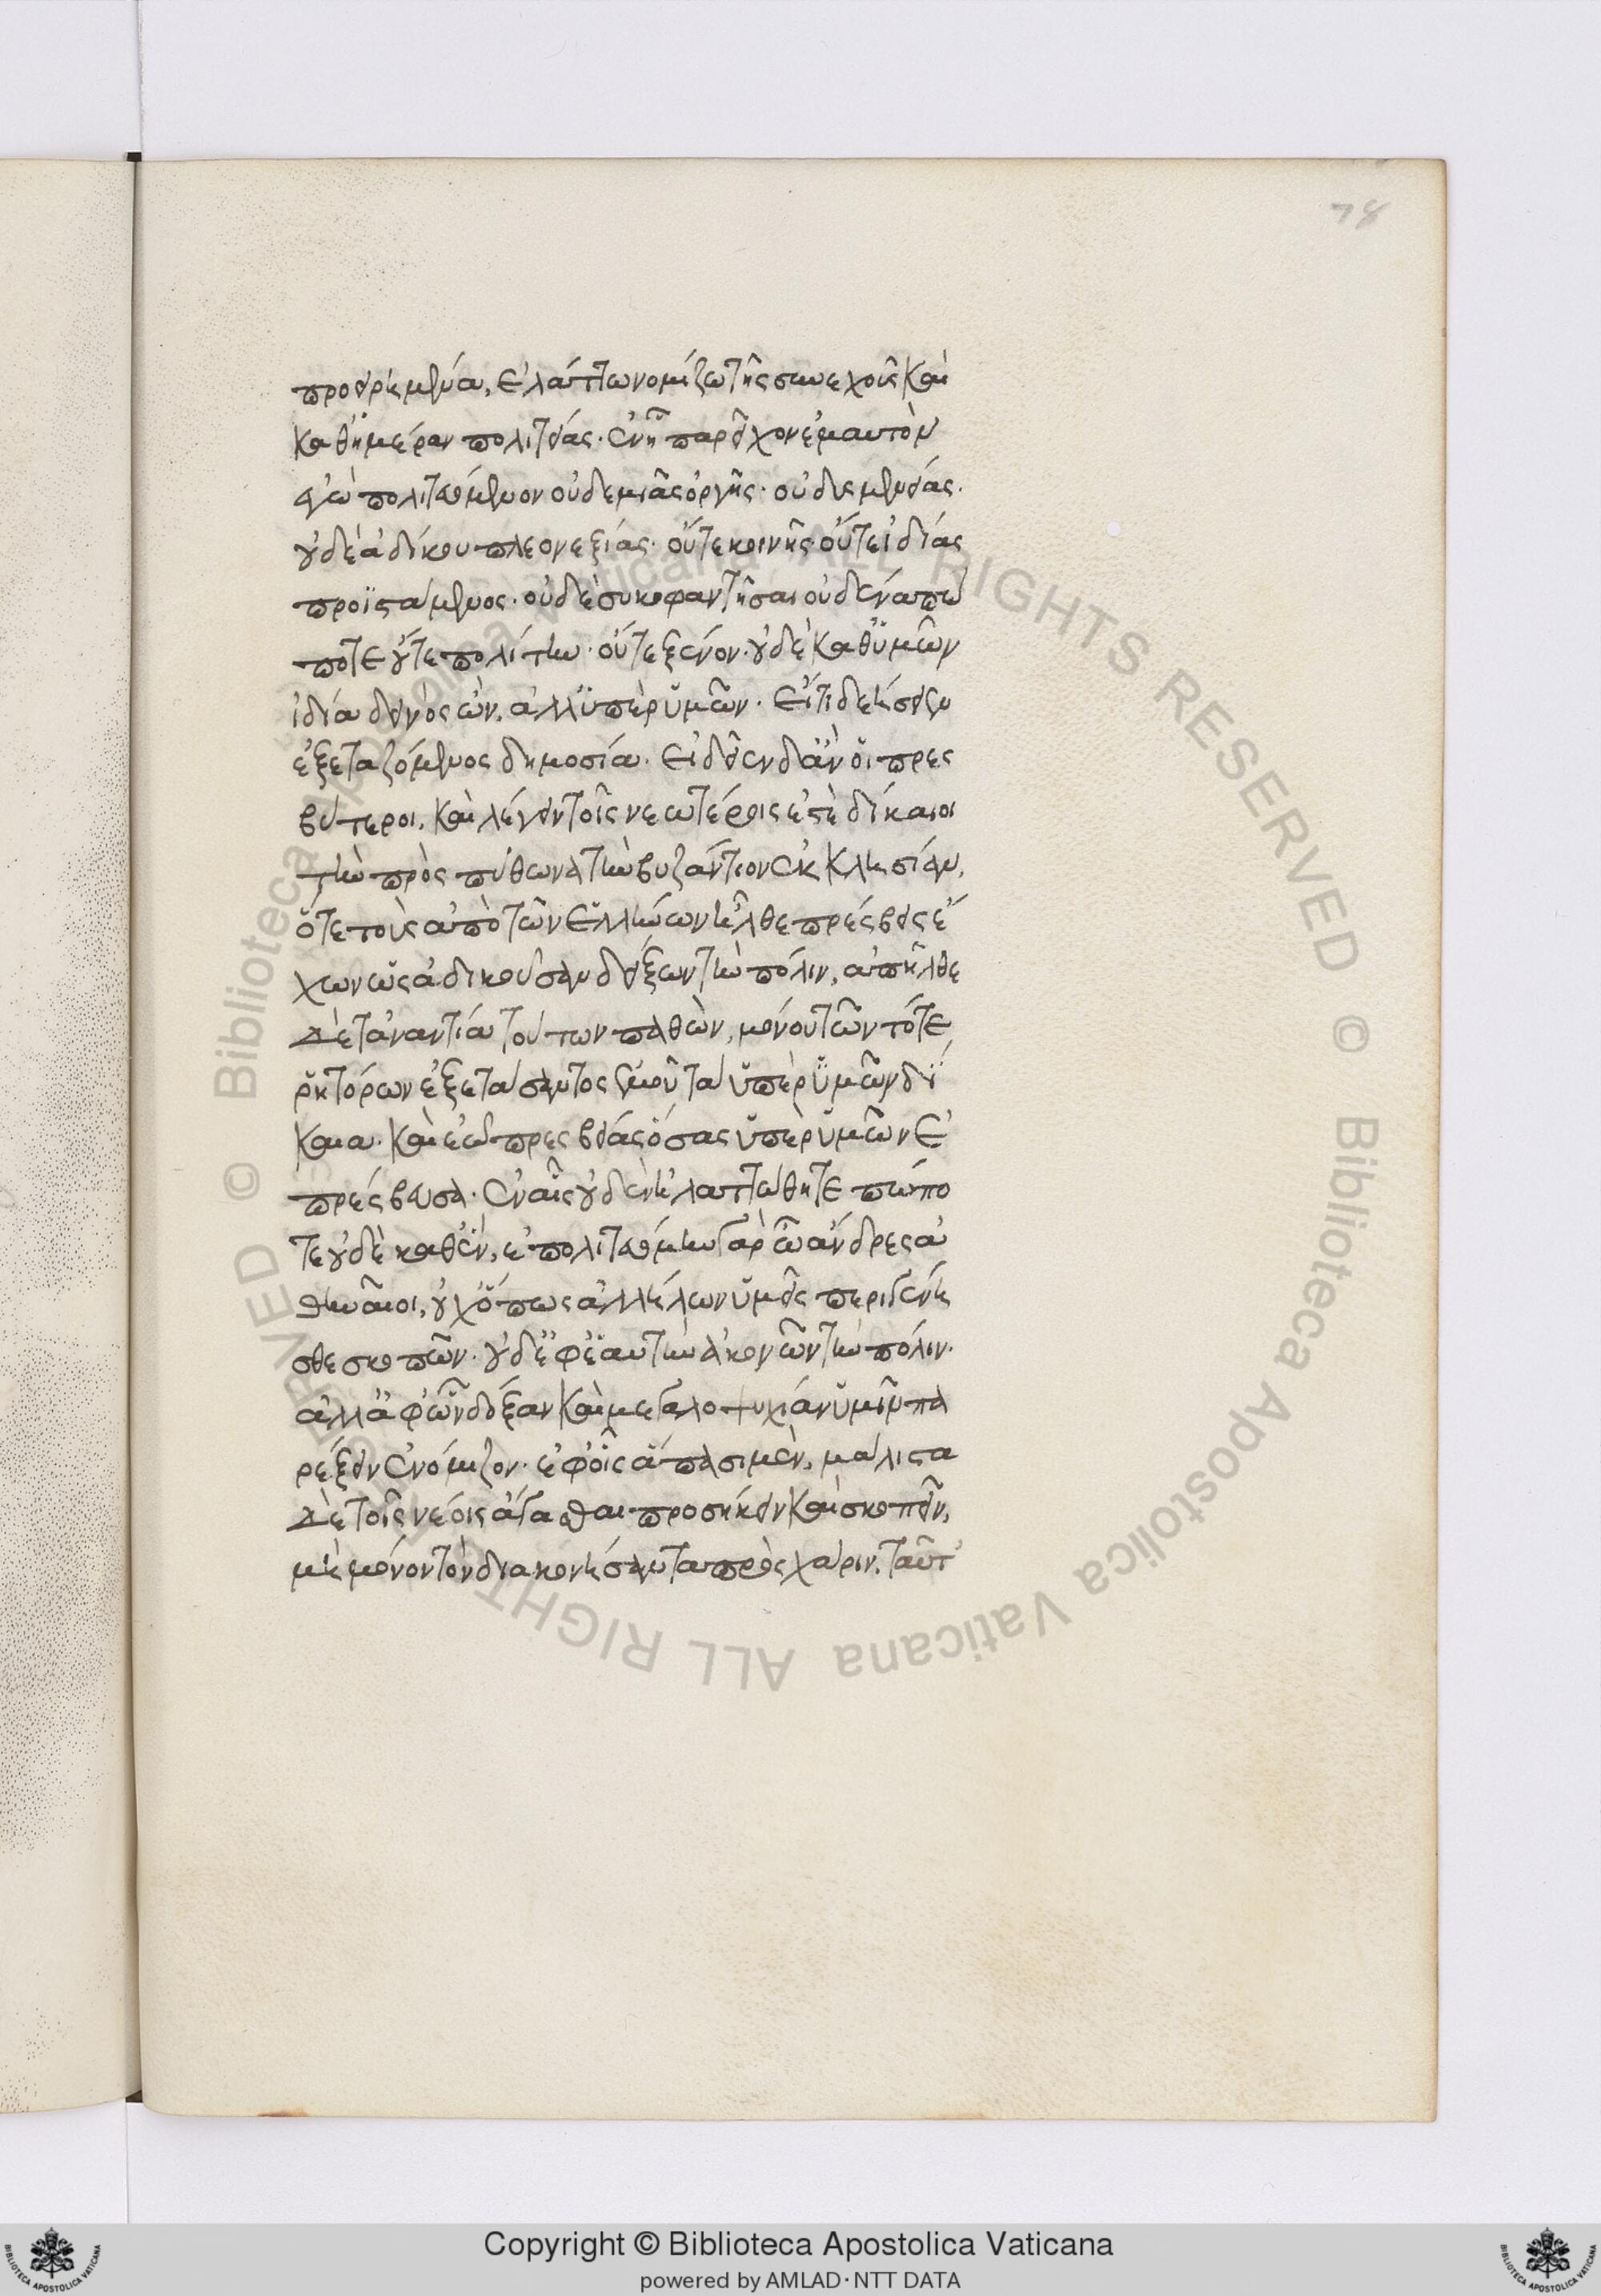 78
προειρημένα, ἐλάττω νομίζω τῆς συνεχοῦς καὶ
καθημέραν πολιτείας. ἐν ᾗ παρεῖχον ἐμαυτὸν
ἐγὼ πολιτευόμενον οὐδεμιᾶς ὀργῆς. οὐδὲ δυσμενείας.
οὐδὲ ἀδίκου πλεονεξίας. οὔτε κοινῆς οὔτε ἰδίας
προϊστάμενος. οὐδὲ συκοφαντήσας οὐδένα πώ
ποτε οὔτε πολίτην. οὔτε ξένον. οὐδὲ καθ' ὑμῶν
ἰδία δεινὸς ὤν, ἀλλ' ὑπὲρ ὑμῶν. εἴ τι δεήσειεν
ἐξεταζόμενος δημοσία. εἰδεῖεν δ' ἂν οἱ πρεσ
βύτεροι, καὶ λέγειν τοῖς νεωτέροις ἐστὲ δίκαιοι
τὴν πρὸς πύθωνα τὸν βυζάντιον ἐκκλησίαν,
ὅτε τοὺς ἀπὸ τῶν ἑλλήνων ἦλθε πρέσβεις ἔ
χων ὡς ἀδικοῦσαν δείξων τὴν πόλιν, ἀπῆλθε
δὲ τἀναντία τούτων παθὼν, μόνου τῶν τότε
ῥητόρων ἐξετάσαντος ἐμοῦ τὰ ὑπὲρ ὑμῶν δί
καια. καὶ ἐῶ πρεσβείας ὅσας ὑπὲρ ὑμῶν ἐ
πρέσβευσα. ἐν αἷς οὐδὲν ἠλαττώθητε πώπο
τε οὐδὲ καθέν, ἐπολιτευόμην γὰρ ὦ ἄνδρες ἀ
θηναῖοι, οὐχ ὅπως ἀλλήλων ὑμεῖς περιγένη
σθε σκοπῶν. οὐδ' ἐφ' ἑαυτὴν ἀκονῶν τὴν πόλιν.
ἀλλ' ἀφ' ὧν δόξαν καὶ μεγαλοψυχίαν ὑμῖν ὑπά
ρξειν ἐνόμιζον. ἐφ' οἷς ἅπασι μὲν, μάλιστα
δὲ τοῖς νέοις ἄγασθαι προσήκει καὶ σκοπεῖν,
μὴ μόνον τὸν διακονήσαντα πρὸς χάριν, ταῦτ'
Copyright © Biblioteca Apostolica Vaticana
powered by AMLAD·NTT DATA